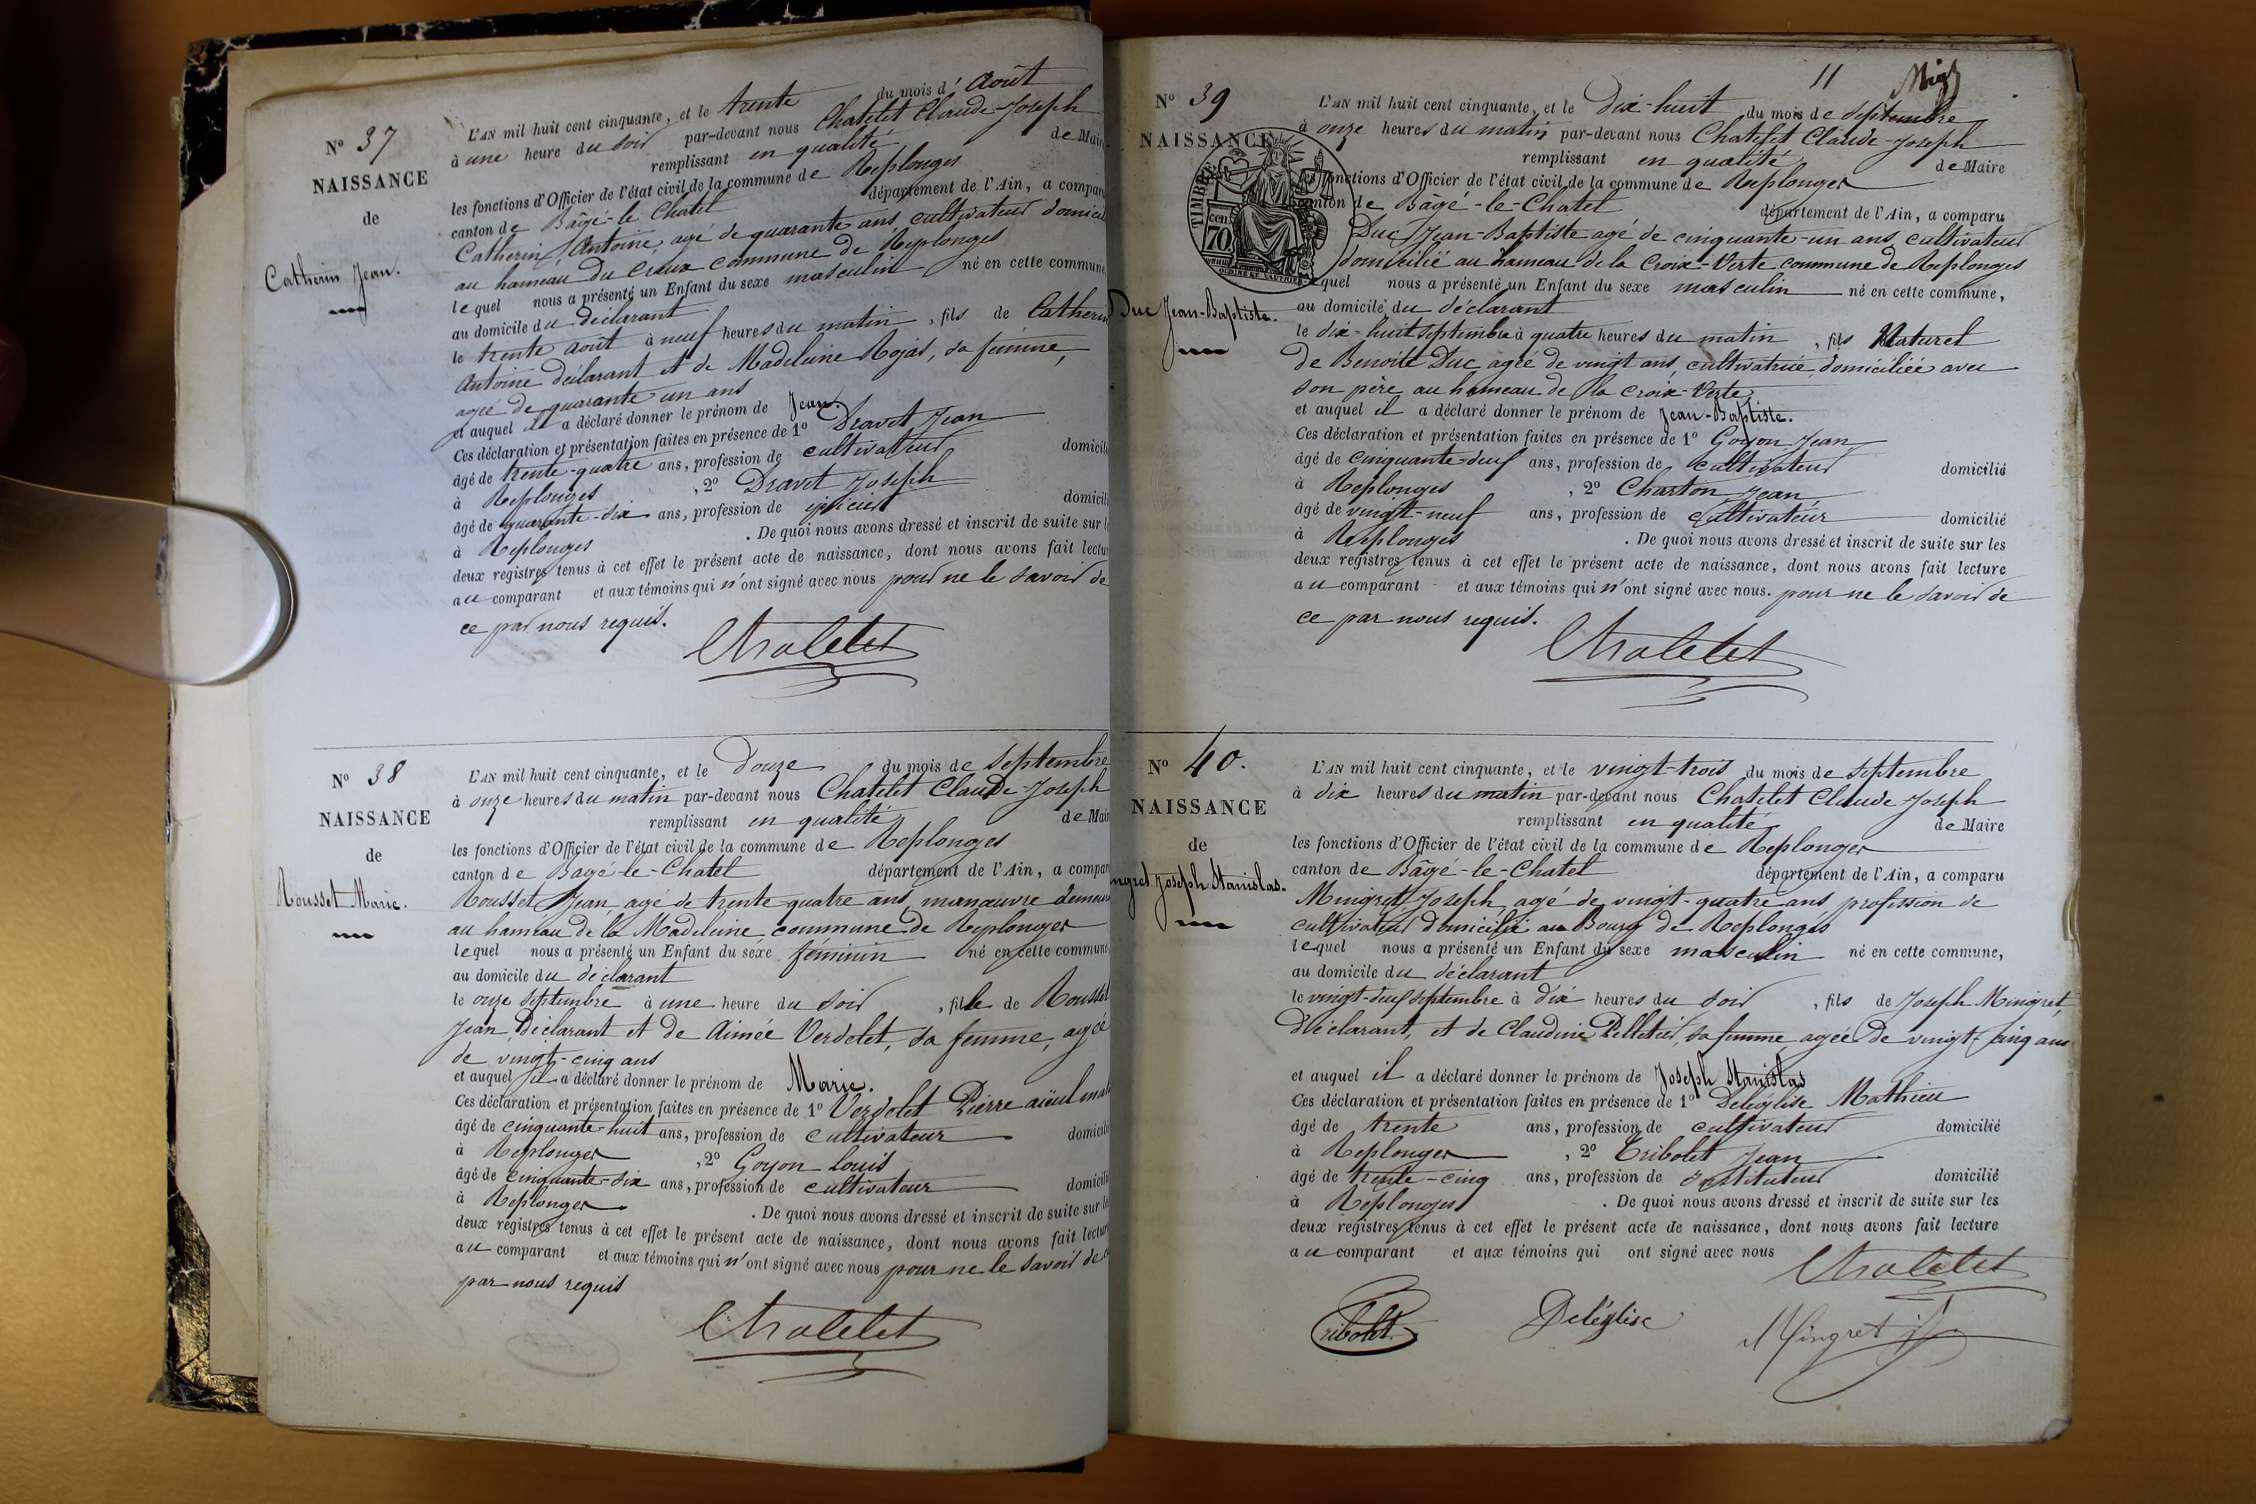 N° 37
NAISSANCE
de
Catherin Jean.
L'AN mil huit cent cinquante, et le trente du mois d'Août
à une heure du soir par-devant nous Chatelet Claude-Joseph
remplissant en qualité de Mair
les fonctions d'Officier de l'état civil de la commune de Replonges
canton de Bâgé-le-Chatel département de l'Ain, a compar
Catherin Antoine, agé de quarante ans, cultivateur domicil
au hameau du Creux commune de Replonges
lequel nous a présenté un Enfant du sexe masculin né en cette commune,
au domicile du déclarant
le trente août à neuf heures du matin, fils de Catherin
Antoine déclarant et de Madeleine Rojas, sa femme,
agée de quarante un ans
et auquel il a déclaré donner le prénom de Jean.
Ces déclaration et présentation faites en présence de 1° Dravet Jean
âgé de trente-quatre ans, profession de cultivateur domicili
à Replonges, 2° Dravet Joseph
âgé de quarante-six ans, profession de épicier domicili
à Replonges. De quoi nous avons dressé et inscrit de suite sur l
deux registres tenus à cet effet le présent acte de naissance, dont nous avons fait lectu
au comparant et aux témoins qui n'ont signé avec nous pour ne le savoir de
ce par nous requis.
Chatelet
N° 38
NAISSANCE
de
Rousset Marie.
L'AN mil huit cent cinquante, et le Douze du mois de septembre
à onze heures du matin par-devant nous Chatelet Claude-Joseph
remplissant en qualité de Mair
les fonctions d'Officier de l'état civil de la commune de Replonges
canton de Bagé-le-Chatel département de l'Ain, a compar
Rousset Jean, agé de trente-quatre ans, manœuvre demeur
au hameau de la Madeleine commune de Replonges
lequel nous a présenté un Enfant du sexe féminin né en cette commune
au domicile du déclarant
le onze septembre à une heure du soir, fille de Rousset
Jean, déclarant et de Aimée Verdelet, sa femme, agée
de vingt-cinq ans
et auquel il a déclaré donner le prénom de Marie.
Ces déclaration et présentation faites en présence de 1° Verdelet Pierre aïeul mat
âgé de cinquante-huit ans, profession de cultivateur domicili
à Replonges, 2° Goyon Louis
âgé de cinquante-six ans, profession de cultivateur domicili
à Replonges. De quoi nous avons dressé et inscrit de suite sur le
deux registres tenus à cet effet le présent acte de naissance, dont nous avons fait lectur
au comparant et aux témoins qui n'ont signé avec nous pour ne le savoir de c
par nous requis
Chatelet
11
N° 39
NAISSANCE
TIMBRE
70 cen.
Duc Jean-Baptiste.
L'AN mil huit cent cinquante, et le Dix-huit du mois de septembre
à onze heures du matin par-devant nous Chatelet Claude-Joseph
remplissant en qualité de Maire
les fonctions d'Officier de l'état civil de la commune de Replonges
canton de Bâgé-le-Chatel département de l'Ain, a comparu
Duc Jean-Baptiste agé de cinquante-un ans, cultivateur
domicilié au hameau de la Croix-Verte commune de Replonges
lequel nous a présenté un Enfant du sexe masculin né en cette commune,
au domicile du déclarant
le dix-huit septembre à quatre heures du matin, fils Naturel
de Benoite Duc, agée de vingt ans, cultivatrice domiciliée avec
son père au hameau de la Croix-Verte
et auquel il a déclaré donner le prénom de Jean-Baptiste.
Ces déclaration et présentation faites en présence de 1° Goyon Jean
âgé de cinquante-deux ans, profession de cultivateur domicilié
à Replonges, 2° Charton Jean
âgé de vingt-neuf ans, profession de cultivateur domicilié
à Replonges. De quoi nous avons dressé et inscrit de suite sur les
deux registres tenus à cet effet le présent acte de naissance, dont nous avons fait lecture
au comparant et aux témoins qui n'ont signé avec nous. pour ne le savoir de
ce par nous requis.
Chatelet
N° 40.
NAISSANCE
de
ngret Joseph Stanislas.
L'AN mil huit cent cinquante, et le vingt-trois du mois de septembre
à dix heures du matin par-devant nous Chatelet Claude-Joseph
remplissant en qualité de Maire
les fonctions d'Officier de l'état civil de la commune de Replonges
canton de Bâgé-le-Chatel département de l'Ain, a comparu
Mingret Joseph, agé de vingt-quatre ans profession de
cultivateur domicilié au Bourg de Replonges
lequel nous a présenté un Enfant du sexe masculin né en cette commune,
au domicile du déclarant
le vingt-deux septembre à dix heures du soir, fils de Joseph Mingret,
déclarant, et de Claudine Pelletier, sa femme, agée de vingt-cinq ans
et auquel il a déclaré donner le prénom de Joseph Stanislas
Ces déclaration et présentation faites en présence de 1° Deléglise Mathieu
âgé de trente ans, profession de cultivateur domicilié
à Replonges, 2° Tribolet Jean
âgé de trente-cinq ans, profession de Instituteur domicilié
à Replonges. De quoi nous avons dressé et inscrit de suite sur les
deux registres tenus à cet effet le présent acte de naissance, dont nous avons fait lecture
au comparant et aux témoins qui ont signé avec nous
Chatelet
Tribolet Deléglise Mingret